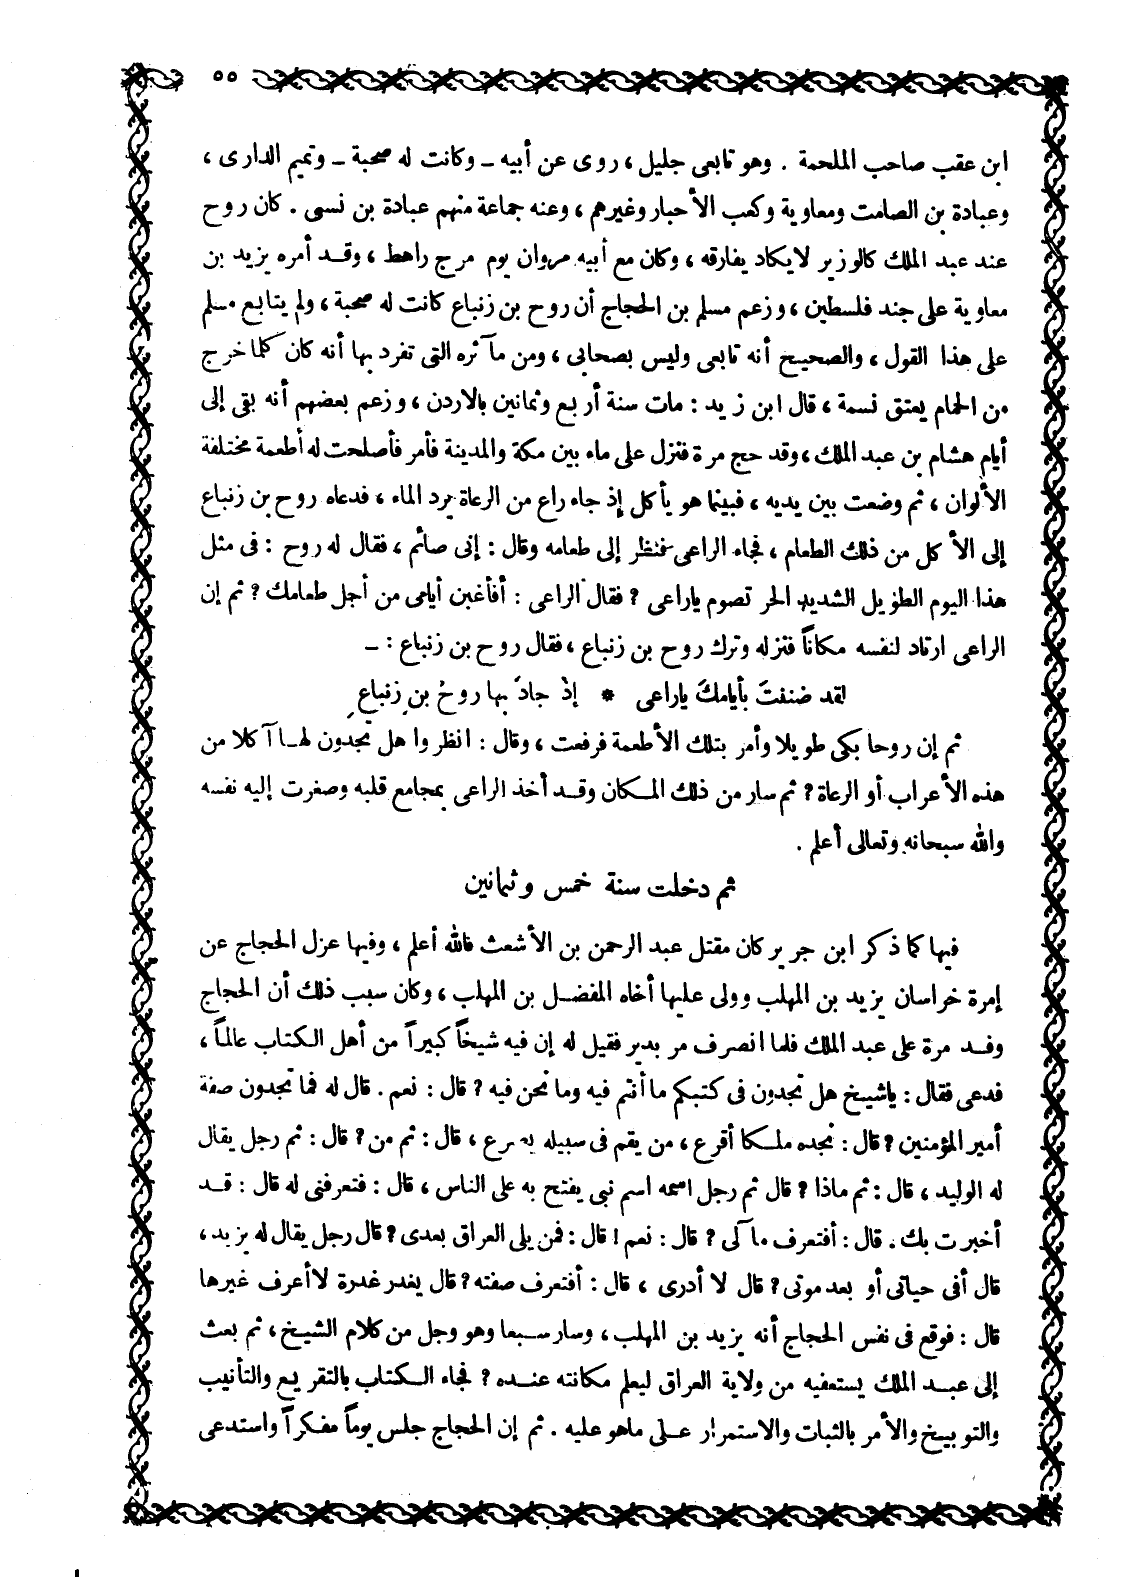 ٥٥
ابن عقب صاحب الملحمة . وهو تابعى جليل ، روى عن أبيه ــ وكانت له صحبة ــ وتميم الدارى ،
وعبادة بن الصامت ومعاوية وكعب الأحبار وغيرهم ، وعنه جماعة منهم عبادة بن نسى . كان روح
عند عبد الملك كالوزير لا يكاد يفارقه ، وكان مع أبيه مروان يوم مرج راهط ، وقد أمره يزيد بن
معاوية على جند فلسطين ، وزعم مسلم بن الحجاج أن روح بن زنباع كانت له صحبة ، ولم يتابع مسلم
على هذا القول ، والصحيح أنه تابعى وليس بصحابى ، ومن مآثره التى تفرد بها أنه كان كلما خرج
من الحمام يعتق نسمة ، قال ابن زيد : مات سنة أربع وثمانين بالاردن ، وزعم بعضهم أنه بقى إلى
أيام هشام بن عبد الملك ، وقد حج مرة فنزل على ماء بين مكة والمدينة فأمر فأصلحت له أطعمة مختلفة
الألوان ، ثم وضعت بين يديه ، فبينما هو يأكل إذ جاء راع من الرعاة يرد الماء ، فدعاه روح بن زنباع
إلى الأكل من ذلك الطعام ، فجاء الراعى فنظر إلى طعامه وقال : إنى صائم ، فقال له روح : فى مثل
هذا اليوم الطويل الشديد الحر تصوم ياراعى ؟ فقال الراعى : أفأغبن أيامى من أجل طعامك ؟ ثم إن
الراعى ارتاد لنفسه مكاناً فنزله وترك روح بن زنباع ، فقال روح بن زنباع : ــ
لقد ضننتَ بأيامكَ ياراعى * إذْ جادَ بها روحُ بن زنباعِ
ثم إن روحا بكى طويلا وأمر بتلك الأطعمة فرفعت ، وقال : انظروا هل تجدون لها آكلا من
هذه الأعراب أو الرعاة ؟ ثم سار من ذلك المكان وقد أخذ الراعى بمجامع قلبه وصغرت إليه نفسه
والله سبحانه وتعالى أعلم .
ثم دخلت سنة خمس وثمانين
فيها كما ذكر ابن جرير كان مقتل عبد الرحمن بن الأشعث فالله أعلم ، وفيها عزل الحجاج عن
إمرة خراسان يزيد بن المهلب وولى عليها أخاه المفضل بن المهلب ، وكان سبب ذلك أن الحجاج
وفد مرة على عبد الملك فلما انصرف مر بدير فقيل له إن فيه شيخاً كبيراً من أهل الكتاب عالماً ،
فدعى فقال : ياشيخ هل تجدون فى كتبكم ما أنتم فيه وما نحن فيه ؟ قال : نعم . قال له فما تجدون صفة
أمير المؤمنين ؟ قال : نجده ملكا أقرع ، من يقم فى سبيله يصرع ، قال : ثم من ؟ قال : ثم رجل يقال
له الوليد ، قال : ثم ماذا ؟ قال ثم رجل اسمه اسم نبى يفتح به على الناس ، قال : فتعرفنى له قال : قد
أخبرت بك . قال : أفتعرف مآلى ؟ قال : نعم ! قال : فمن يلى العراق بعدى ؟ قال رجل يقال له يزيد ،
قال أفى حياتى أو بعد موتى ؟ قال لا أدرى ، قال : أفتعرف صفته ؟ قال يغدر غدرة لا أعرف غيرها
قال : فوقع فى نفس الحجاج أنه يزيد بن المهلب ، وسار سبعا وهو وجل من كلام الشيخ ، ثم بعث
إلى عبد الملك يستعفيه من ولاية العراق ليعلم مكانته عنده ؟ فجاء الكتاب بالتقريع والتأنيب
والتوبيخ والأمر بالثبات والاستمرار على ماهو عليه . ثم إن الحجاج جلس يوماً مفكراً واستدعى